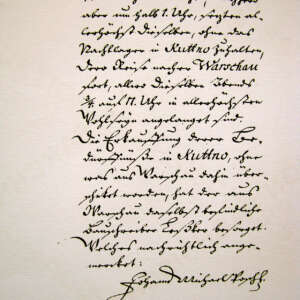 aber um halb 1. Uhr, setzten al-
lerhöchst dieselben, ohne das
Nachtlager in Kuttno zuhalten,
Dero Reise nacher Warschau
fort, allwo dieselben Abends
3/4 auf 11. Uhr in allerhöchsten
Wohlseyn angelanget sind.
Die Erkauffung derer Be-
dürffnüße in Kuttno, ohne
was aus Warschau dahin über-
schicket worden, hat der aus
Warschau daselbst befindliche
Bauschreiber besorget.
Welches nachrichtlich ange-
mercket:
Johann Michael